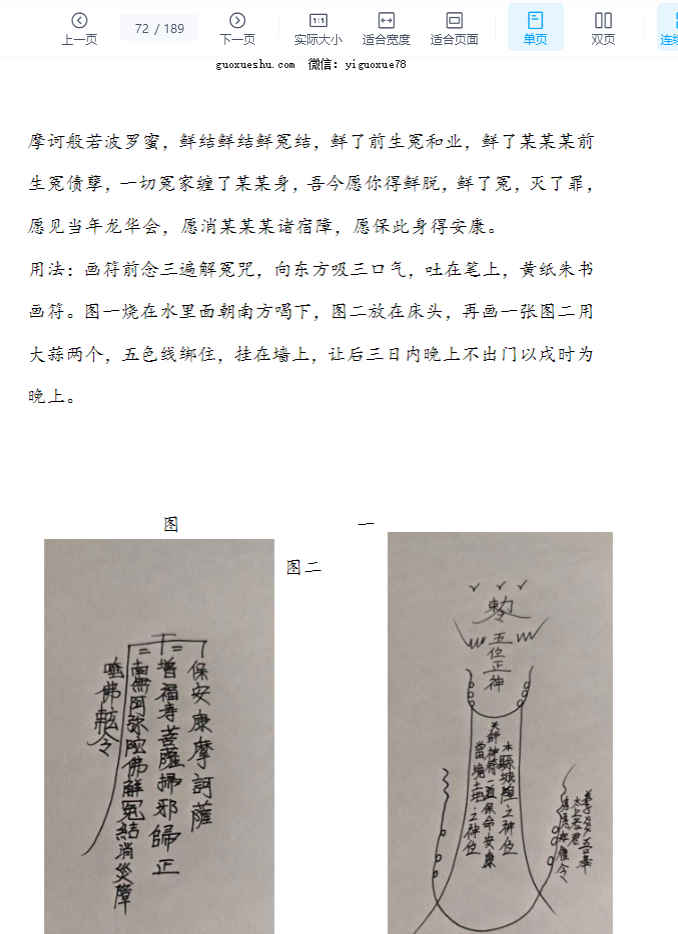 上一页
72 / 189
下一页
实际大小
适合宽度
适合页面
单页
双页
连续
guoxueshu.com 微信：yiguoxue78
摩诃般若波罗蜜，鲜结鲜结鲜冤结，鲜了前生冤和业，鲜了某某某前
生冤债孽，一切冤家缠了某某身，吾今愿你得鲜脱，鲜了冤，灭了罪，
愿见当年龙华会，愿消某某某诸宿障，愿保此身得安康。
用法：画符前念三遍解冤咒，向东方吸三口气，吐在笔上，黄纸朱书
画符。图一烧在水里面朝南方喝下，图二放在床头，再画一张图二用
大蒜两个，五色线绑住，挂在墙上，让后三日内晚上不出门以戌时为
晚上。
图 一
图二
保安康摩訶薩
增福寿菩薩掃邪歸正
南無阿弥陀佛解冤結消災障
唵佛
令
勅令
五位正神
本縣城隍之神位
保命安康
當境土地之神位
太上老君